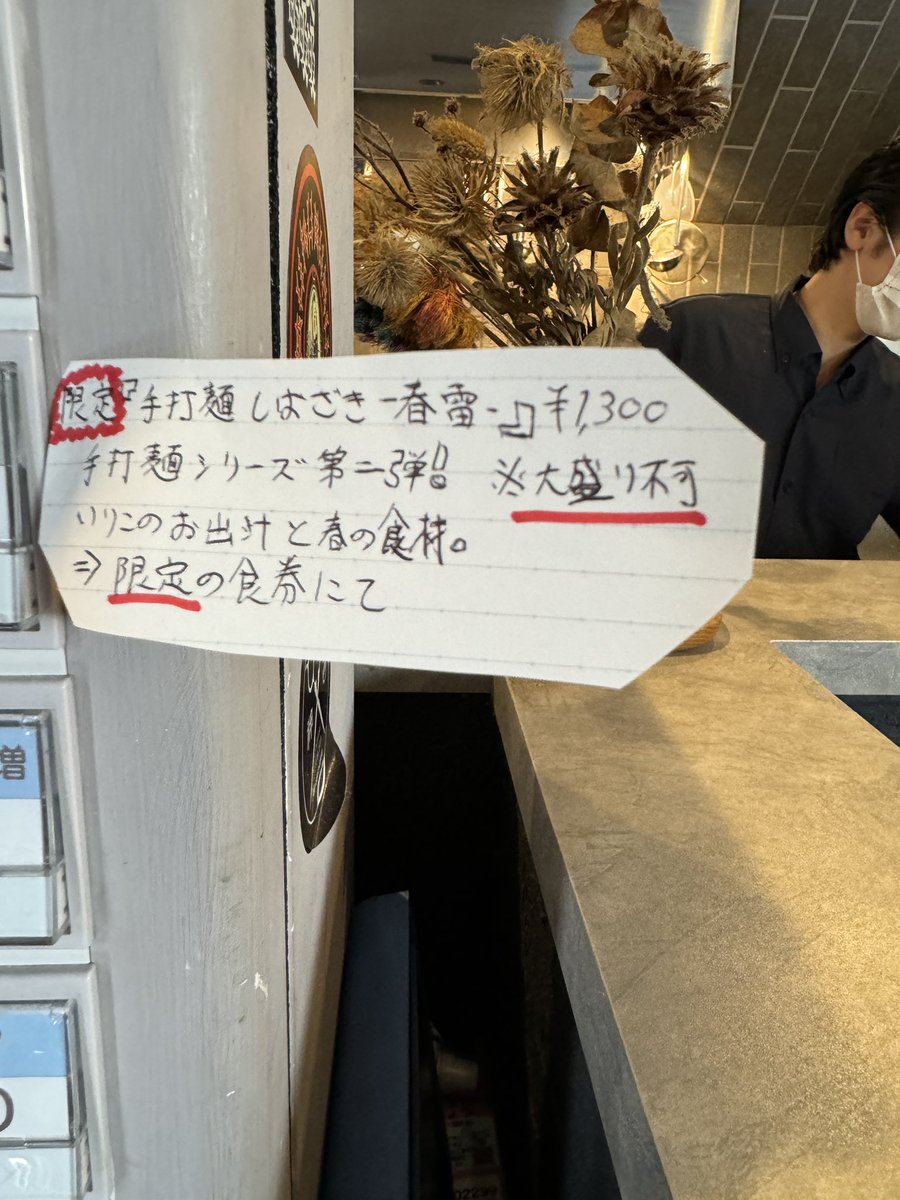 限定『手打麺しはざき-春雷-』¥1,300
手打麺シリーズ第二弾!! ※大盛り不可
いりこのお出汁と春の食材。
⇒限定の食券にて
増